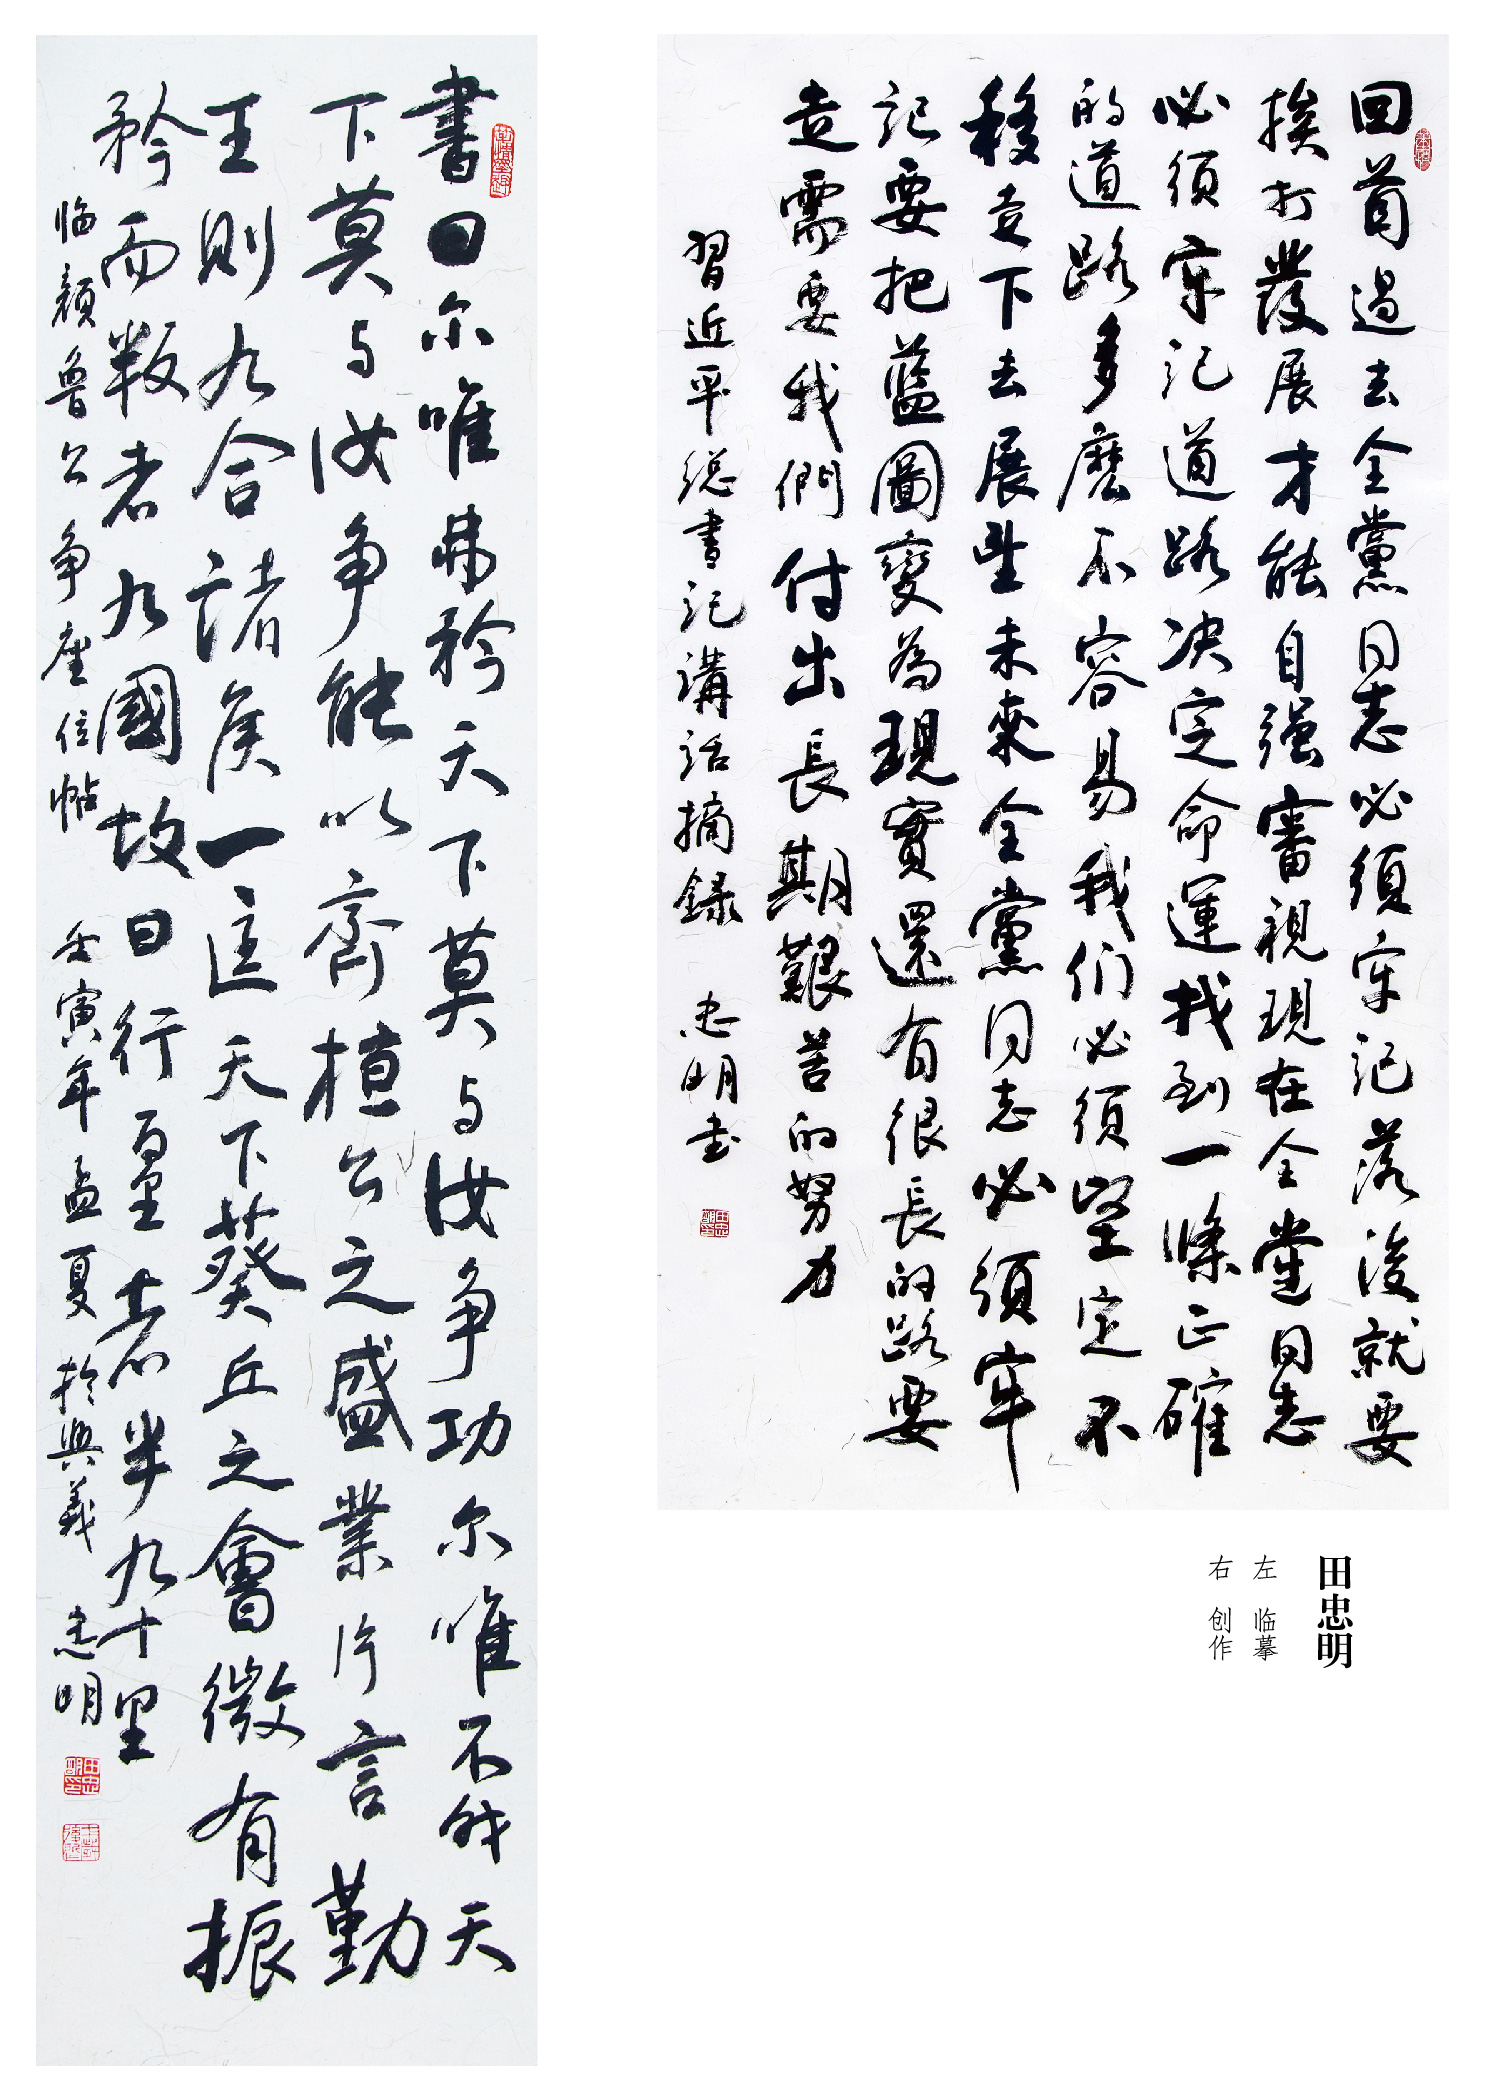 回首過去全黨同志必須牢記落後就要
挨打發展才能自强審視現在全黨同志
必須牢記道路决定命運找到一條正確
的道路多麽不容易我们必須堅定不
移走下去展望未來全黨同志必須牢
記要把藍圖變為現實還有很長的路要
走需要我們付出長期艱苦的努力
習近平總書記講話摘錄 忠明書
田忠明印
田忠明
左 临摹
右 创作
書曰尔唯弗矜天下莫与汝争功尔唯不伐天
下莫与汝争能以齊桓公之盛業片言勤
王則九合諸侯一匡天下葵丘之會微有振
矜而叛者九國故曰行百里者半九十里
临顔魯公争座位帖 壬寅年孟夏於興義 忠明
田忠明印